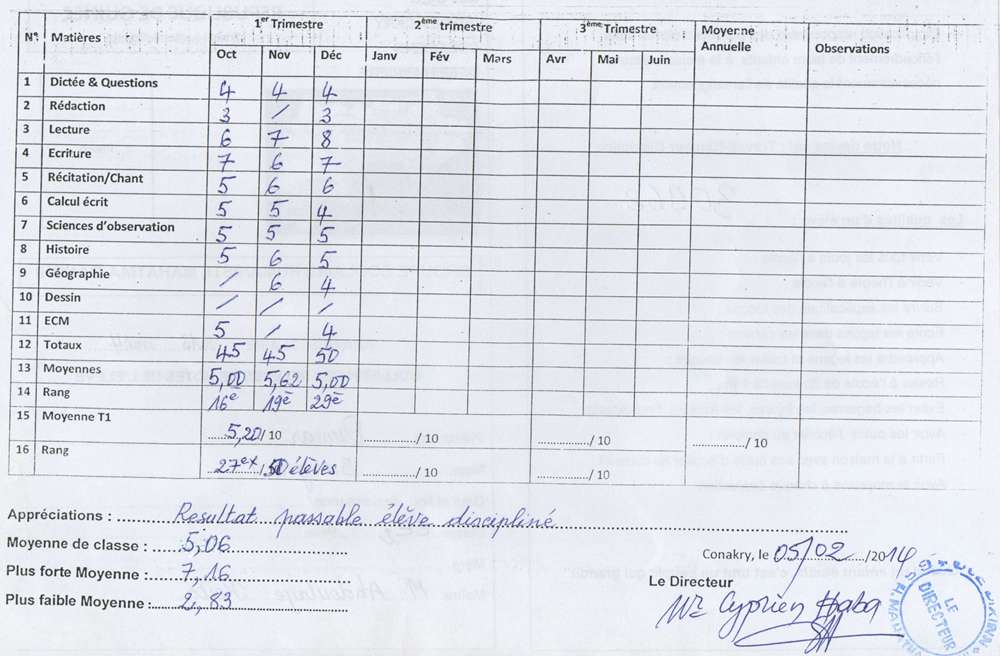 N°. Matières 1er Trimestre 2ème trimestre 3ème Trimestre Moyenne Annuelle Observations
Oct Nov Déc Janv Fév Mars Avr Mai Juin
1 Dictée & Questions 4 4 4
2 Rédaction 3 / 3
3 Lecture 6 7 8
4 Ecriture 7 6 7
5 Récitation/Chant 5 6 6
6 Calcul écrit 5 5 4
7 Sciences d'observation 5 5 5
8 Histoire 5 6 5
9 Géographie / 6 4
10 Dessin / / /
11 ECM 5 / 4
12 Totaux 45 45 50
13 Moyennes 5,00 5,62 5,00
14 Rang 16e 19e 29e
15 Moyenne T1 5,20/ 10 ............/ 10 ............/ 10 ............/ 10
16 Rang 27ex / élèves ............/ 10 ............/ 10
Appréciations : Resultat passable élève discipliné
Moyenne de classe : 5,06
Plus forte Moyenne : 7,16
Plus faible Moyenne : 2,83
Conakry, le 05/02/2014
Le Directeur
Mr Cyprien Haba
LE DIRECTEUR